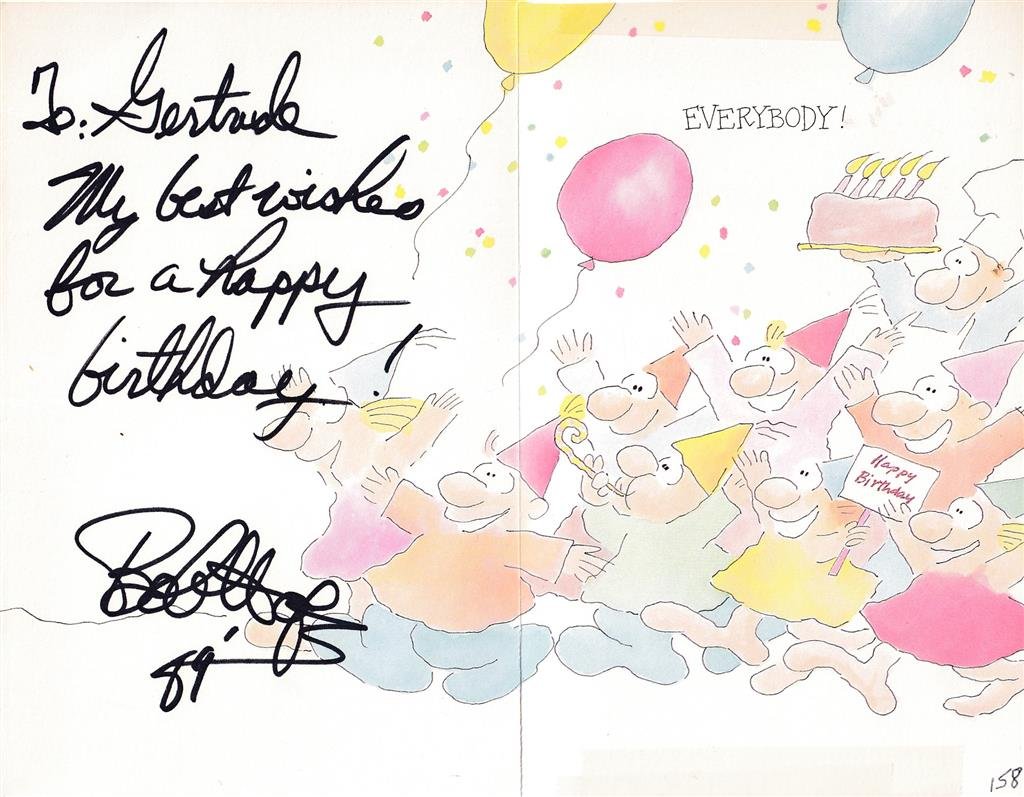 To: Gertrude
My best wishes
for a happy
birthday!
89'
EVERYBODY!
Happy
Birthday
158